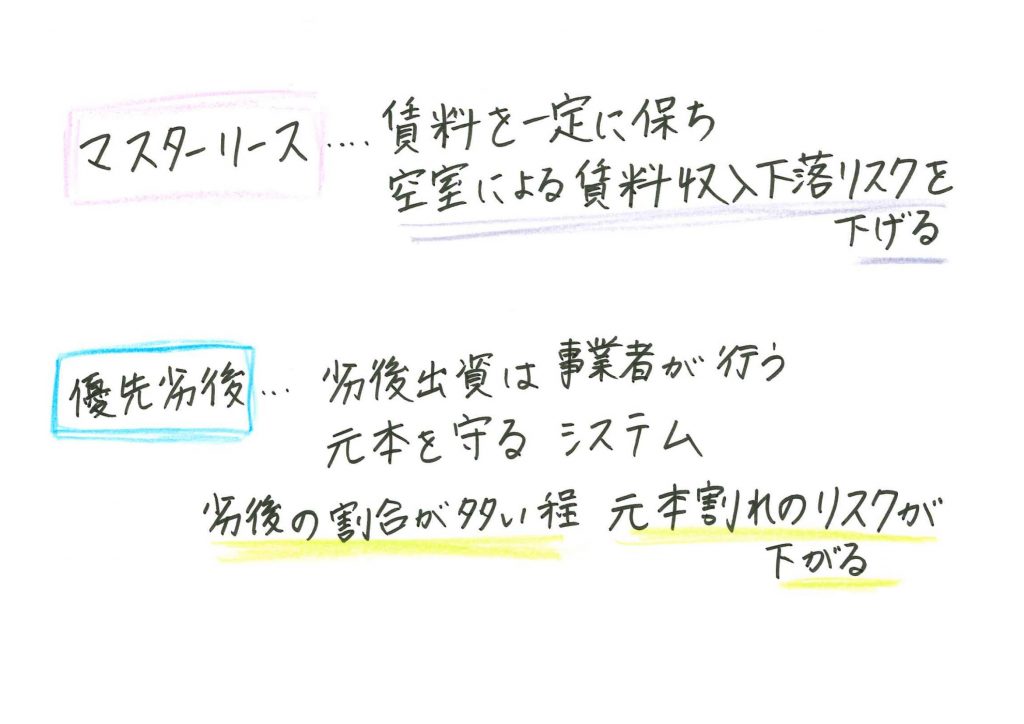 マスターリース‥‥賃料を一定に保ち
空室による賃料収入下落リスクを
下げる
優先劣後…劣後出資は事業者が行う
元本を守るシステム
劣後の割合が多い程 元本割れのリスクが
下がる